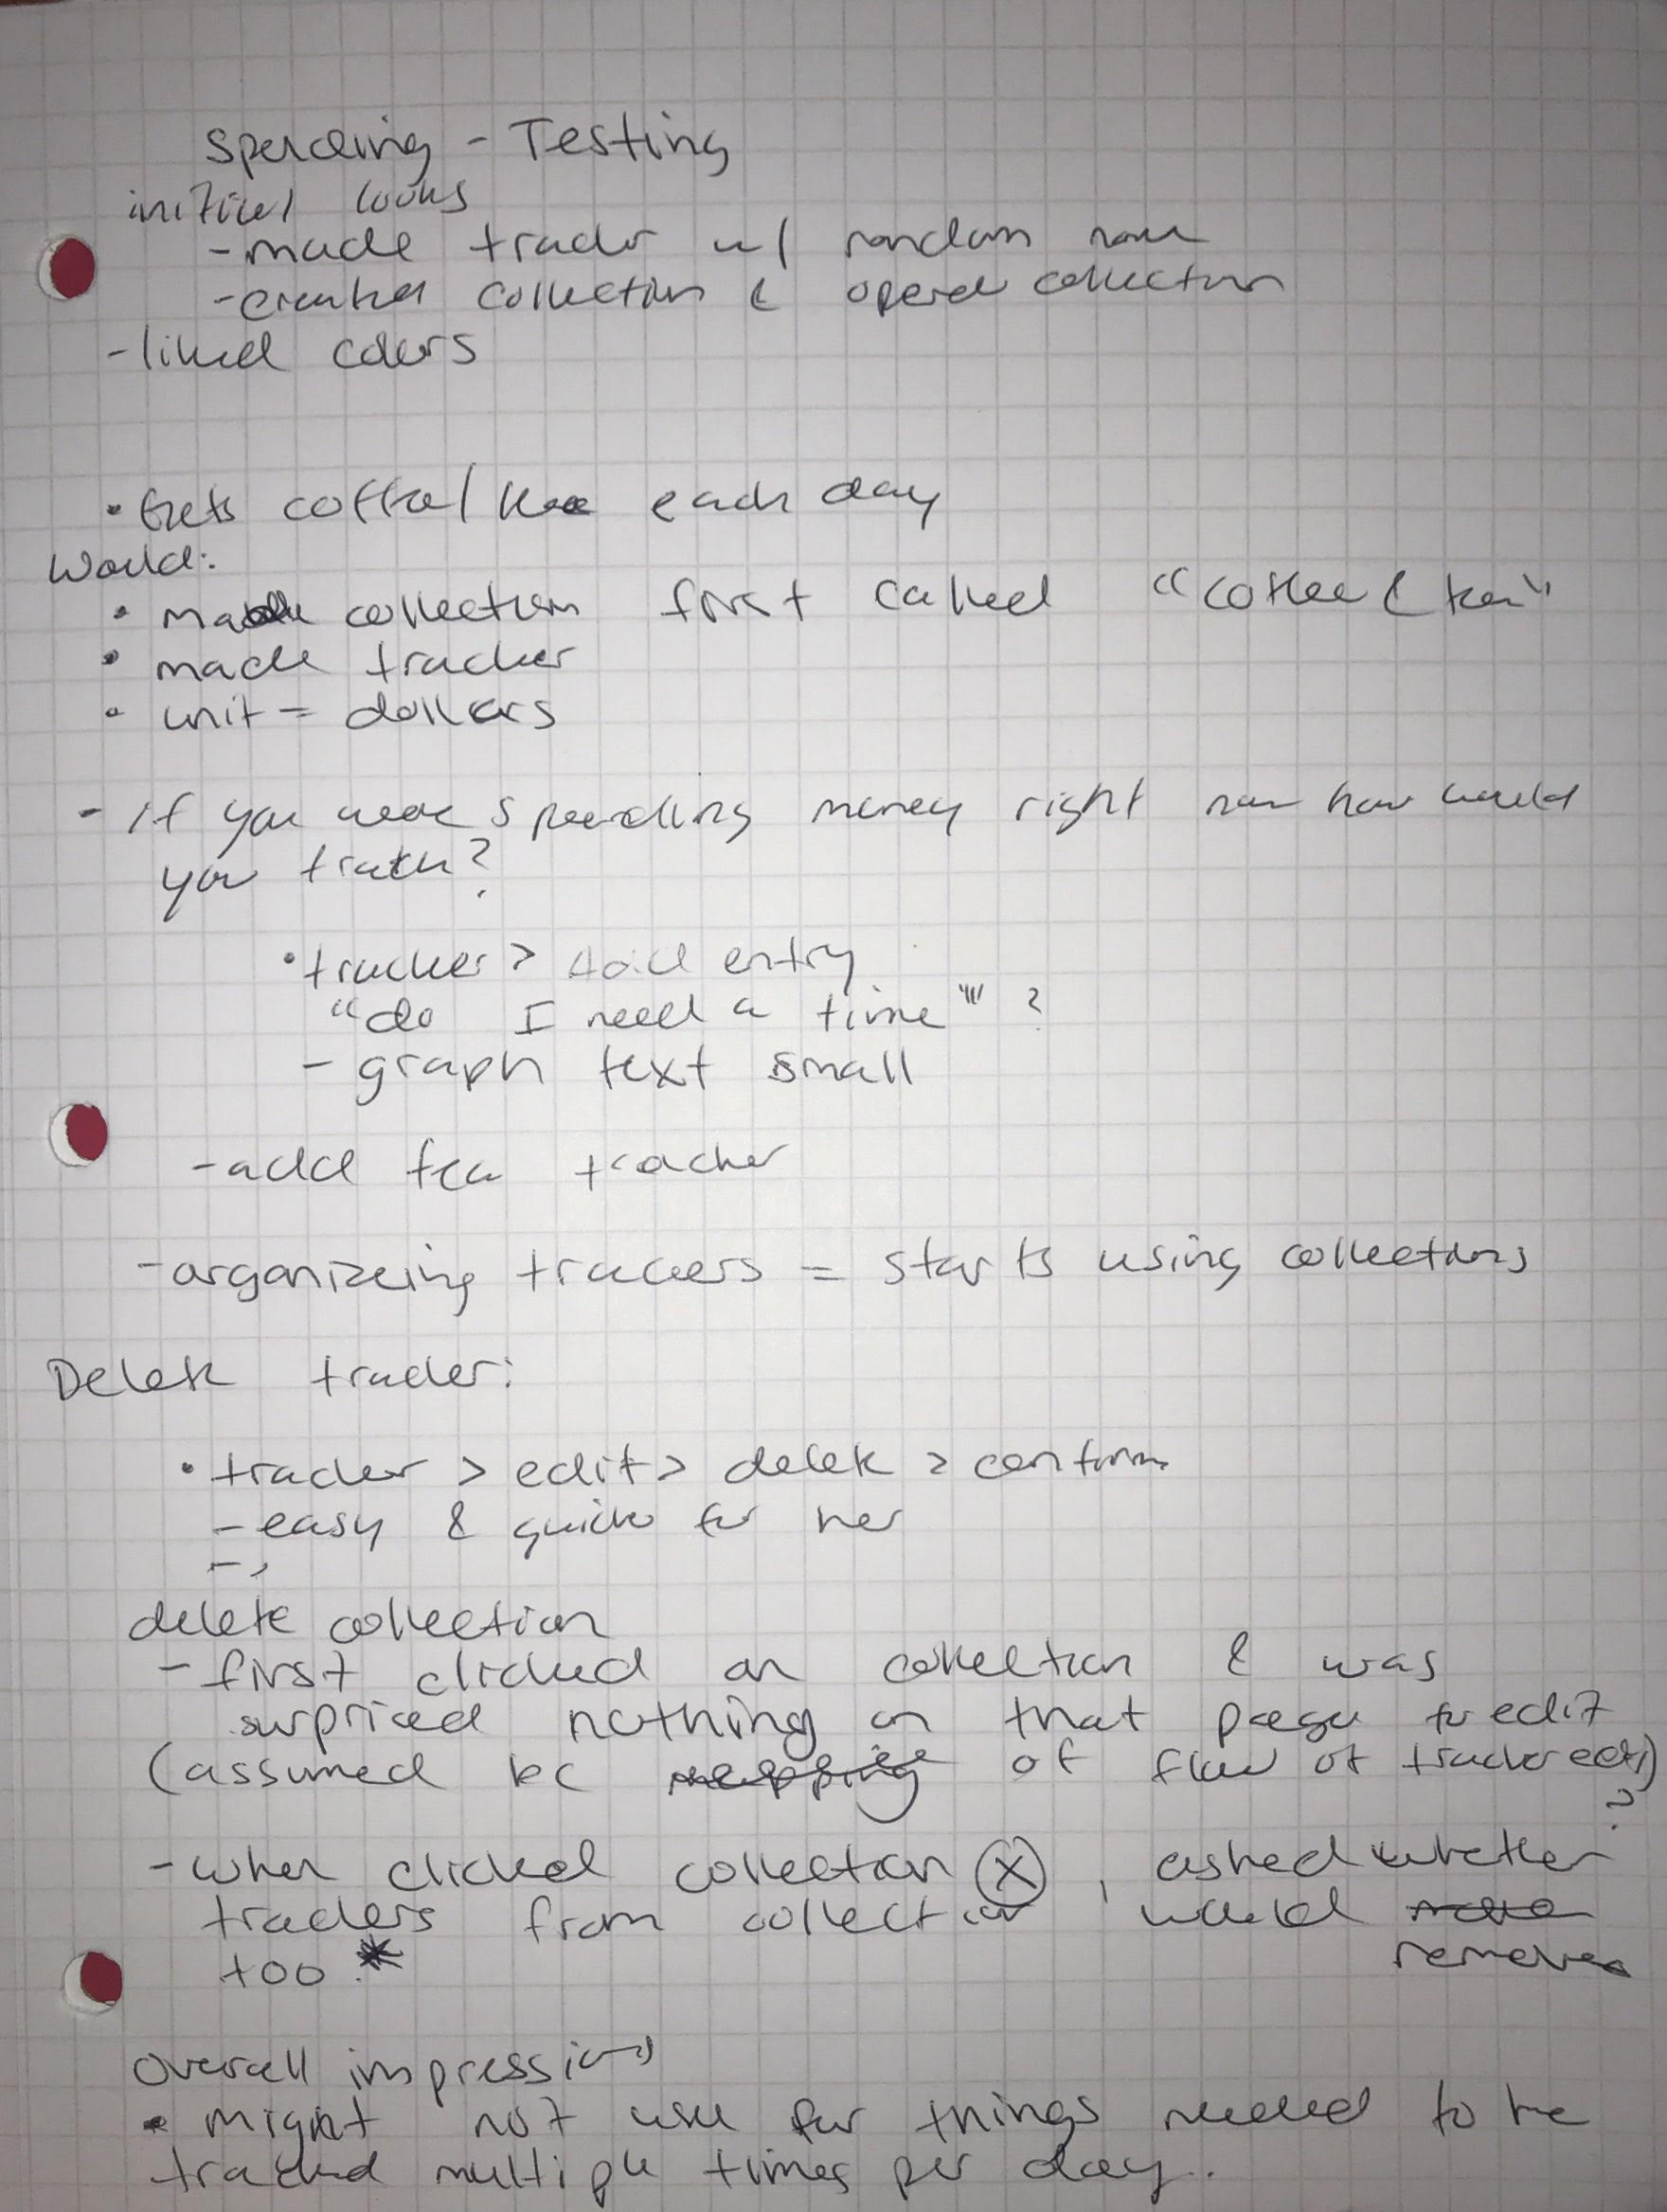 Spending - Testing
initial looks
- made tracker w/ random name
- created collection & opened collection
- liked colors
• Gets coffee/tea each day
World:
• made collection first called "coffee & tea"
• made tracker
• unit = dollars
- If you were spending money right now how would
you track?
• tracker > add entry
"do I need a time" ?
- graph text small
- add tea tracker
- organizing trackers = starts using collections
Delete tracker:
• tracker > edit > delete > confirm
- easy & quick for her
-
delete collection
- first clicked on collection & was
surprised nothing on that page to edit
(assumed bc of flow of tracker edit)
?
- when clicked collection ⓧ, asked whether
trackers from collection would
removes
too. *
Overall impressions
• might not use for things needed to be
tracked multiple times per day.